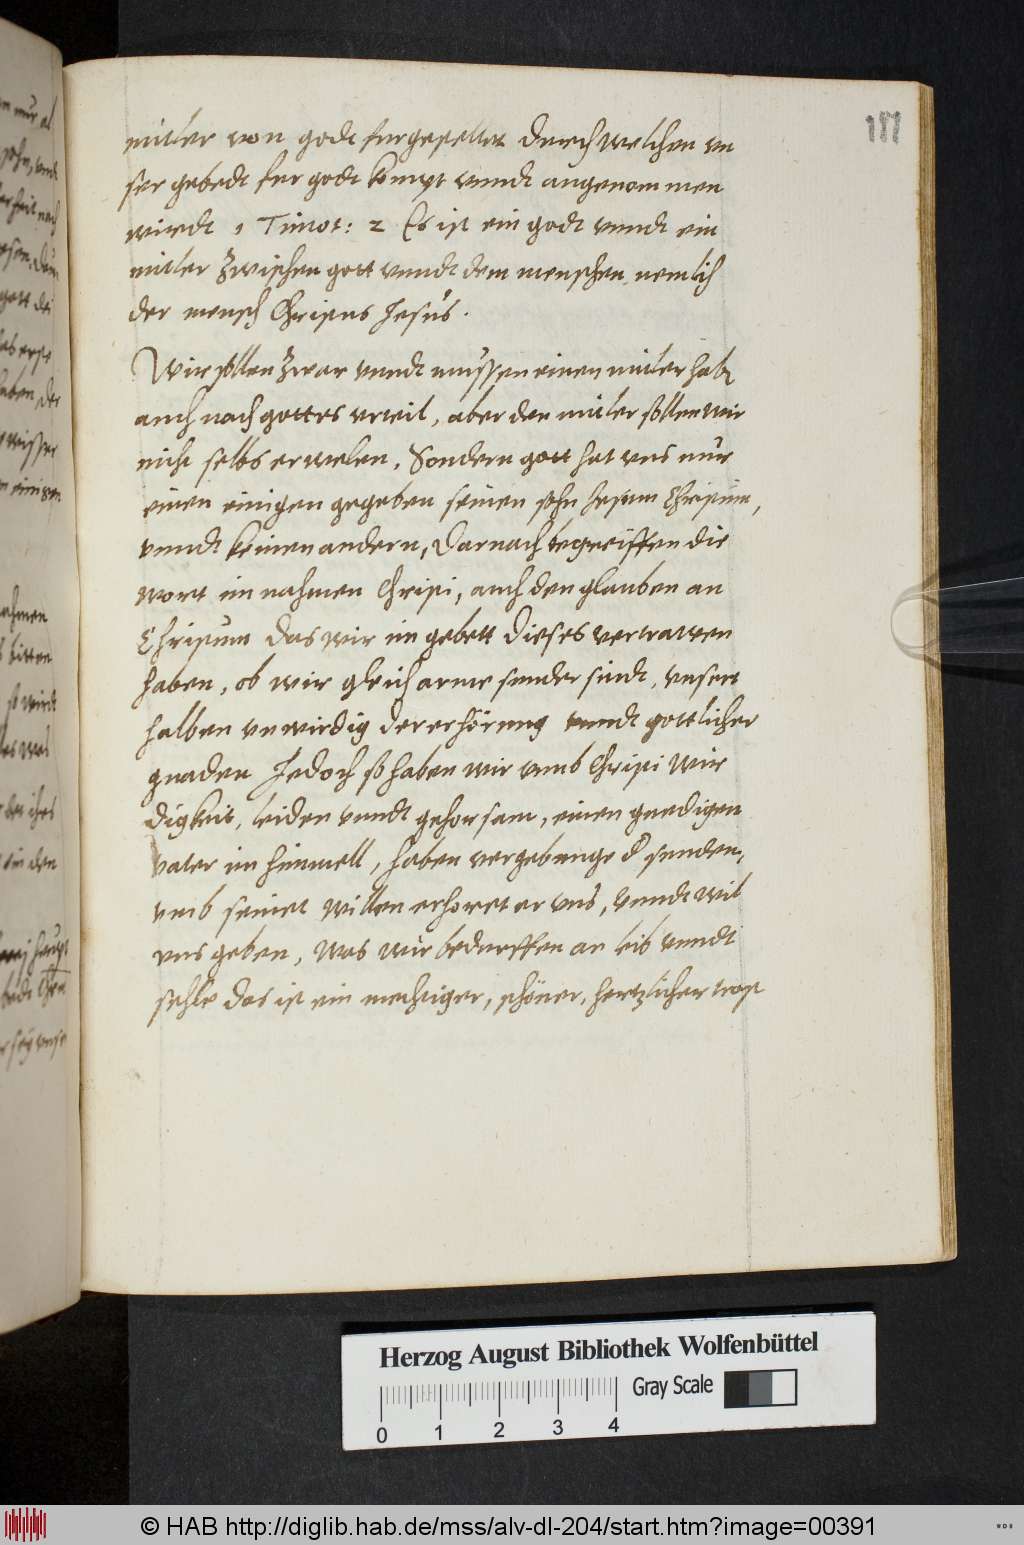 187
mitler von godt furgestellet durch welchen vn
ser gebedt fur godt kompt vnndt angenommen
wirdt 1 Timot: 2 Es ist ein godt vnndt ein
mitler zwischen gott vnndt dem menschen nemlich
der mensch Christus Jesus.
Wir sollen zwar vnndt mussen einen mitler habn
auch nach gottes vrteil, aber den mitler sollen wir
nicht selbs erwelen, Sondern gott hat vns nur
einen einigen gegeben seinen sohn Jesum Christum,
vnndt keinen andern, Darnach begreiffen die
wort im nahmen Christi, auch den glauben an
Christum das wir im gebett dieses vertrawen
haben, ob wir gleich arme sunder sindt, vnsert
halben vnwirdig der erhörung vnndt gottlicher
gnaden Jedoch so haben wir vmb Christi wir
digkeit, leiden vnndt gehorsam, einen gnedigen
vater im himmell, haben vergebunge d sunden,
vmb seinet willen erhoret er vns, vnndt wil
vns geben, was wir bedurffen an leib vnndt
sehle das ist ein mechtiger, schöner, hertzlicher trost
Herzog August Bibliothek Wolfenbüttel
Gray Scale
0 1 2 3 4
© HAB http://diglib.hab.de/mss/alv-dl-204/start.htm?image=00391